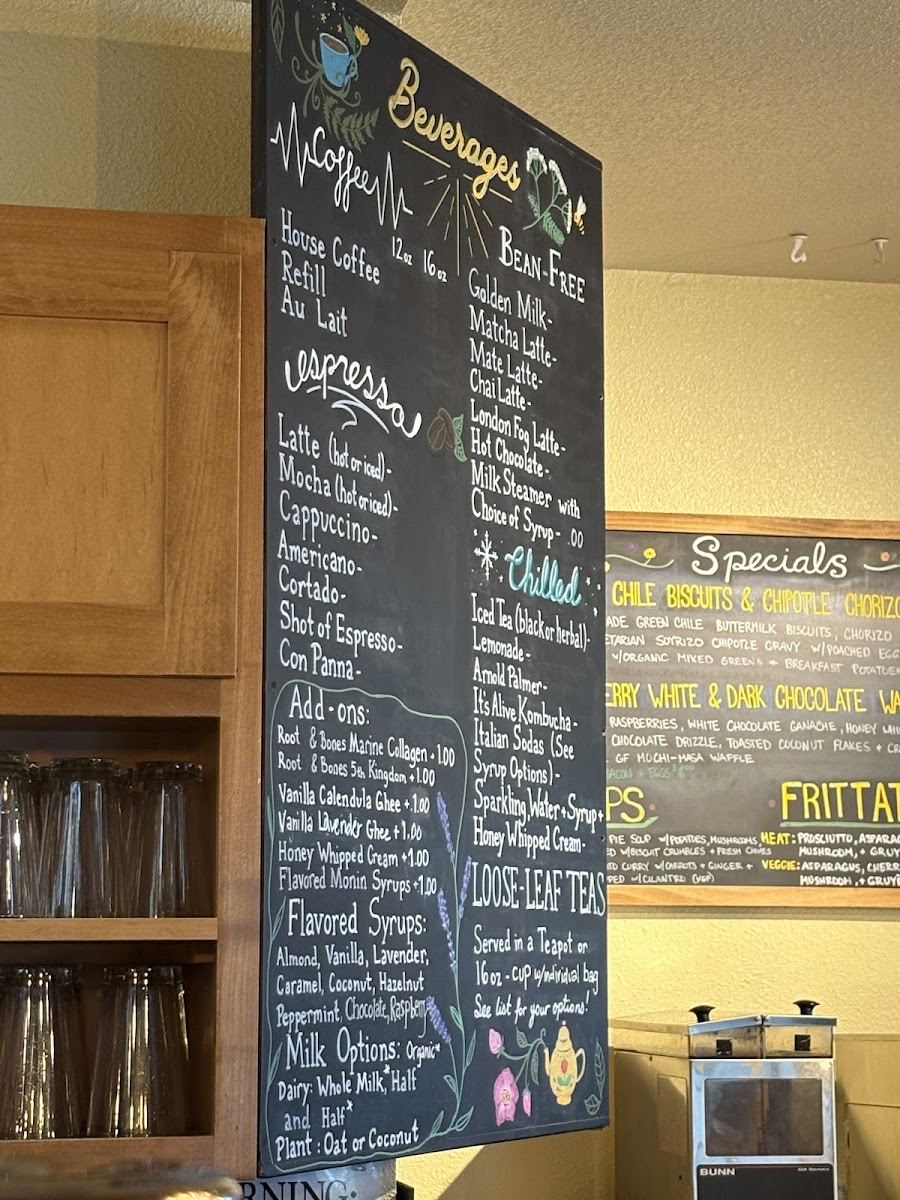 Beverages
Coffee
12oz 16oz
House Coffee
Refill
Au Lait
espresso
Latte (hot or iced)-
Mocha (hot or iced)-
Cappuccino-
Americano-
Cortado-
Shot of Espresso-
Con Panna-
Add-ons:
Root & Bones Marine Collagen + 1.00
Root & Bones 5th Kingdom +1.00
Vanilla Calendula Ghee +1.00
Vanilla Lavender Ghee +1.00
Honey Whipped Cream +1.00
Flavored Monin Syrups +1.00
Flavored Syrups:
Almond, Vanilla, Lavender,
Caramel, Coconut, Hazelnut
Peppermint, Chocolate, Raspberry
Milk Options: Organic*
Dairy: Whole Milk,* Half
and Half*
Plant: Oat or Coconut
BEAN-FREE
Golden Milk-
Matcha Latte-
Mate Latte-
Chai Latte-
London Fog Latte-
Hot Chocolate-
Milk Steamer with
Choice of Syrup- .00
Chilled
Iced Tea (black or herbal)-
Lemonade-
Arnold Palmer-
It's Alive Kombucha-
Italian Sodas (See
Syrup Options)-
Sparkling Water+Syrup+
Honey Whipped Cream-
LOOSE-LEAF TEAS
Served in a Teapot or
16oz-cup w/individual bag
See list for your options!
Specials
CHILE BISCUITS & CHIPOTLE CHORIZO
ADE GREEN CHILE BUTTERMILK BISCUITS, CHORIZO
ETARIAN SOYRIZO CHIPOTLE GRAVY W/POACHED EGG
W/ORGANIC MIXED GREENS + BREAKFAST POTATOE
ERRY WHITE & DARK CHOCOLATE WA
RASPBERRIES, WHITE CHOCOLATE GANACHE, HONEY WHI
CHOCOLATE DRIZZLE, TOASTED COCONUT FLAKES + CR
GF MOCHI-MASA WAFFLE
BACON + EGGS
PS
PIE SOUP W/POTATOES, MUSHROOMS,
D W/BISCUIT CRUMBLES + FRESH CHIVES
D CURRY W/CARROTS + GINGER +
PED W/CILANTRO
FRITTAT
MEAT: PROSCIUTTO, ASPARAG
MUSHROOM, + GRUY
VEGGIE: ASPARAGUS, CHERR
MUSHROOM, + GRUYE
BUNN
RNING: